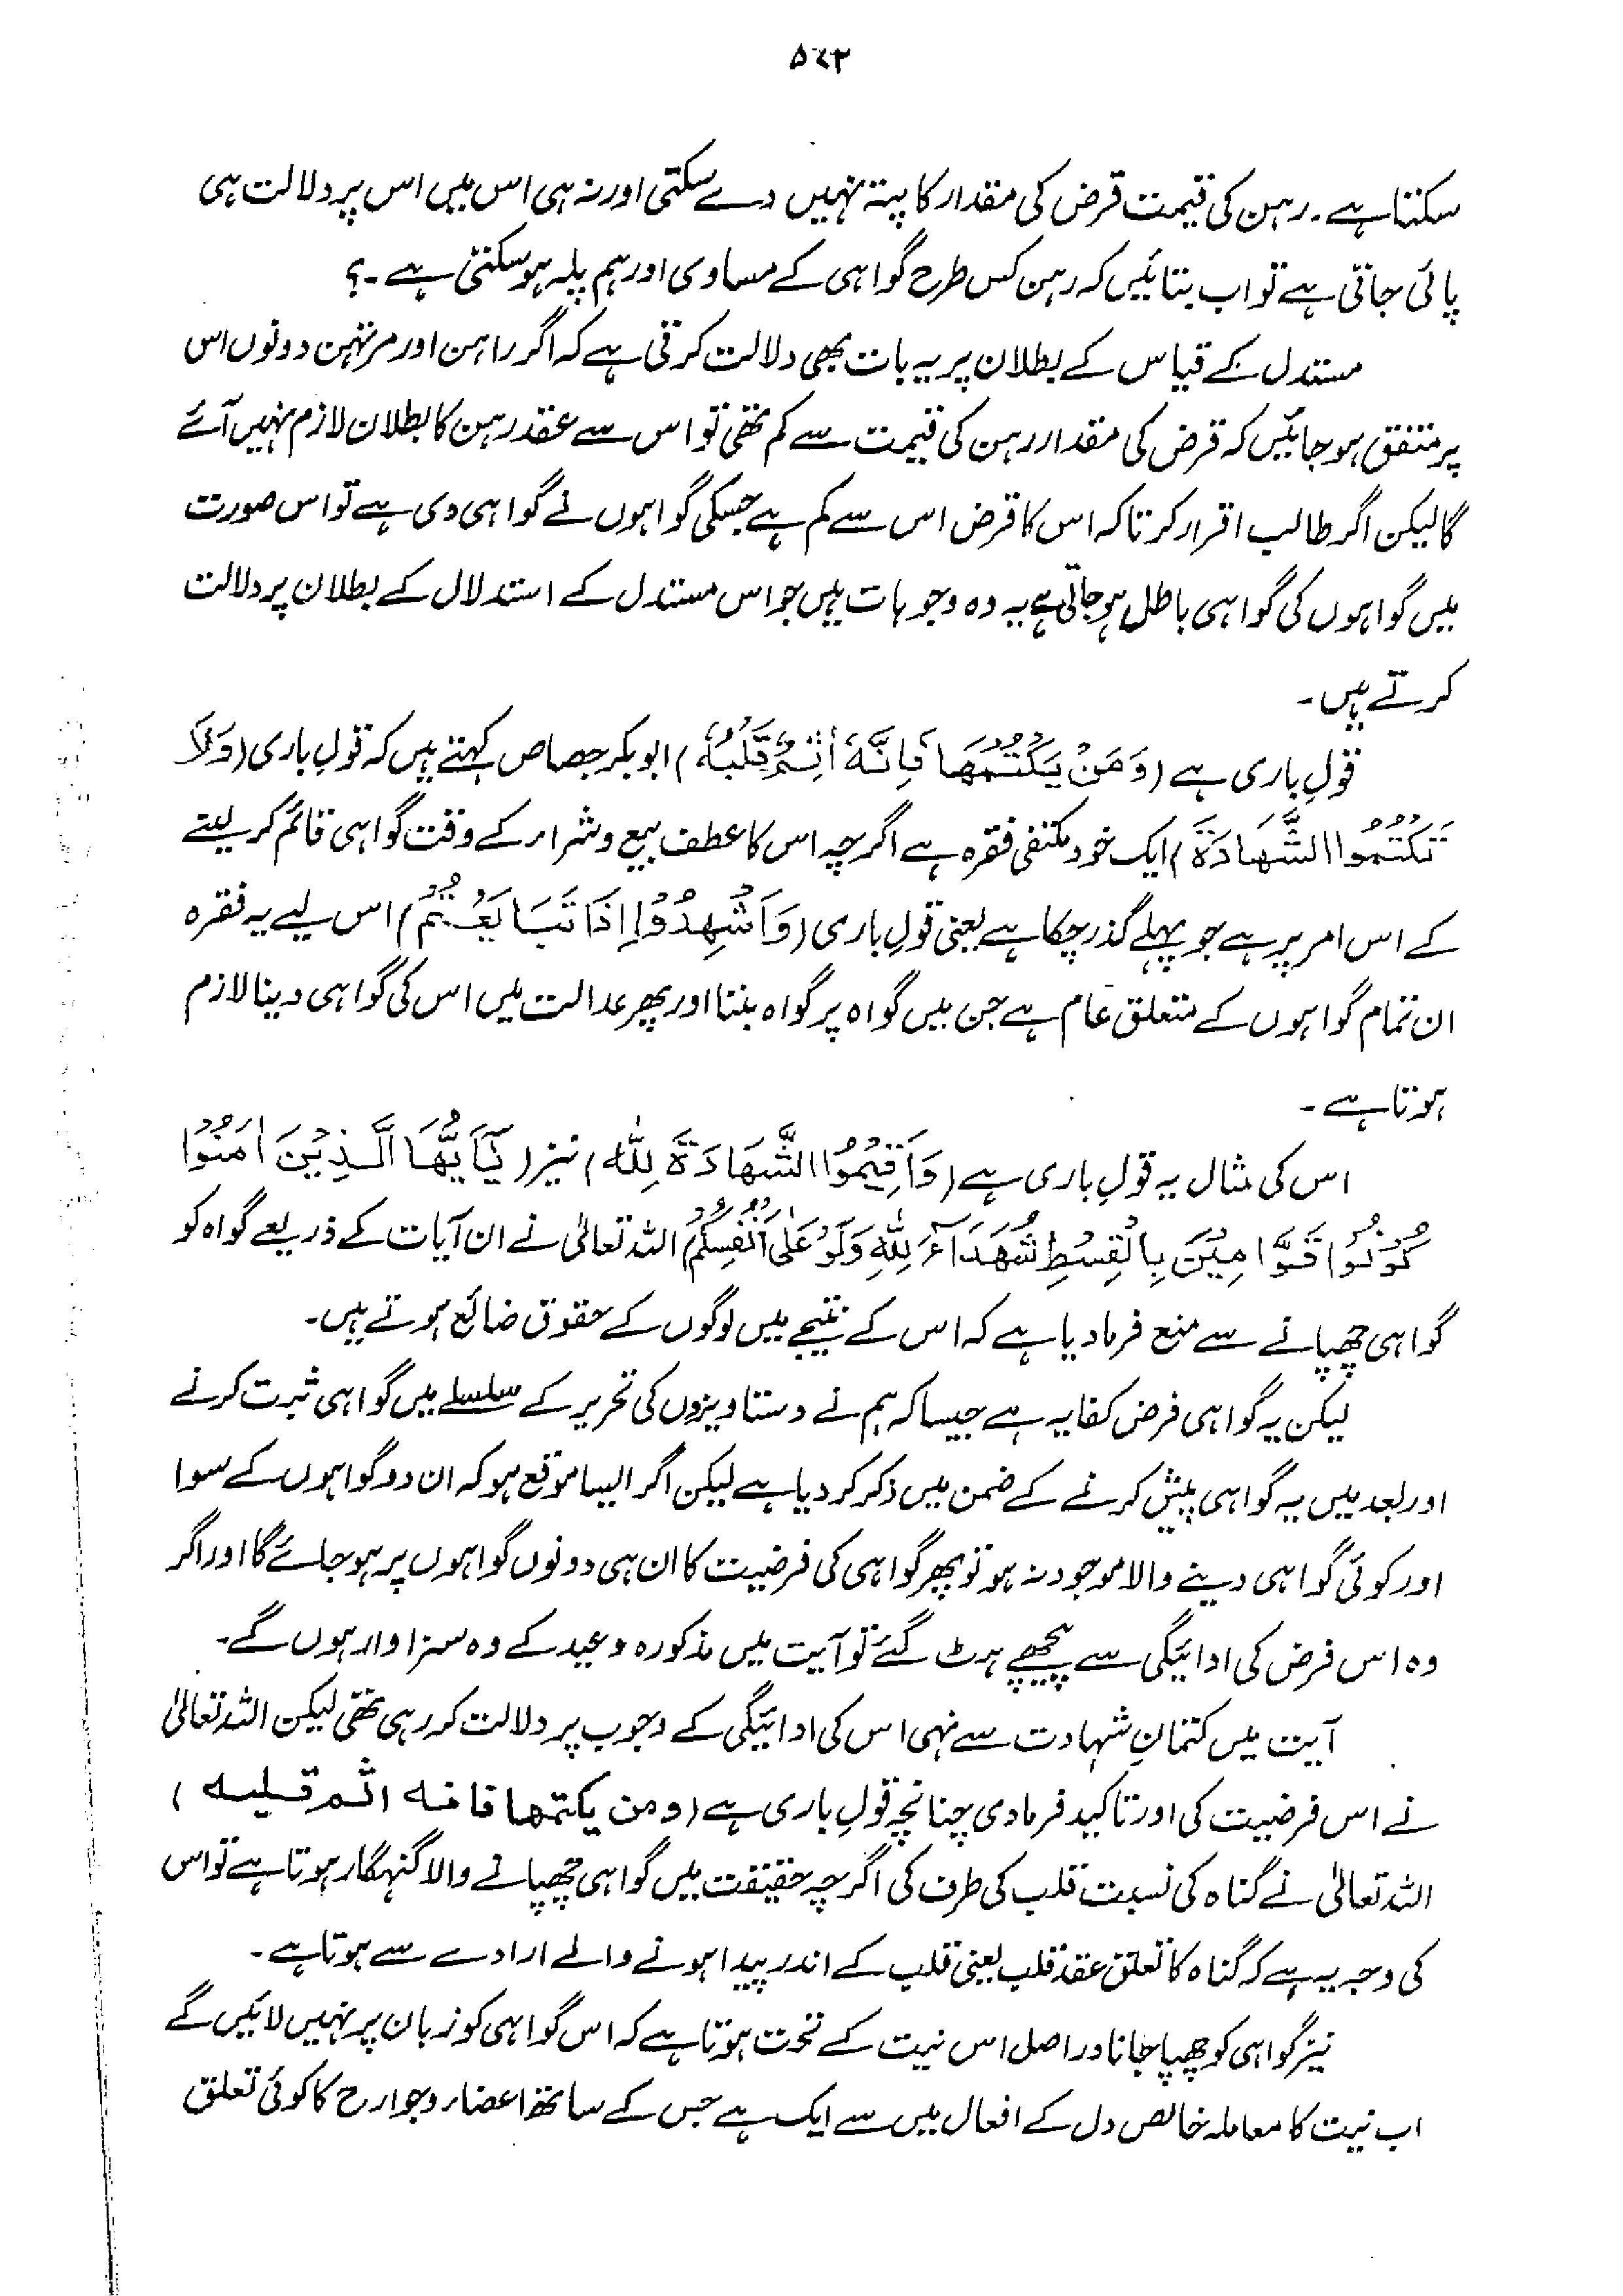 ۵۷۳
سکتا ہے۔ رہن کی قیمت قرض کی مقدار کا پتہ نہیں دے سکتی اور نہ ہی اس میں اس پر دلالت ہی
پائی جاتی ہے تو اب بتائیں کہ رہن کس طرح گواہی کے مساوی اور ہم پلہ ہو سکتی ہے۔؟
مستدل کے قیاس کے بطلان پر یہ بات بھی دلالت کرتی ہے کہ اگر راہن اور مرتہن دونوں اس
پر متفق ہو جائیں کہ قرض کی مقدار رہن کی قیمت سے کم تھی تو اس سے عقد رہن کا بطلان لازم نہیں آئے
گا لیکن اگر طالب اقرار کرتا کہ اس کا قرض اس سے کم ہے جسکی گواہوں نے گواہی دی ہے تو اس صورت
میں گواہوں کی گواہی باطل ہو جاتی ہے یہ وہ وجوہات ہیں جو اس مستدل کے استدلال کے بطلان پر دلالت
کرتے ہیں۔
قولِ باری ہے (وَمَنْ يَكْتُمْهَا فَإِنَّهُ آثِمٌ قَلْبُهُ) ابوبکر جصاص کہتے ہیں کہ قولِ باری (وَلَا
تَكْتُمُوا الشَّهَادَةَ) ایک خود مکتفی فقرہ ہے اگرچہ اس کا عطف بیع و شراء کے وقت گواہی قائم کر لینے
کے اس امر پر ہے جو پہلے گذر چکا ہے یعنی قولِ باری (وَأَشْهِدُوا إِذَا تَبَايَعْتُمْ) اس لیے یہ فقرہ
ان تمام گواہوں کے متعلق عام ہے جن میں گواہ پر گواہ بننا اور پھر عدالت میں اس کی گواہی دینا لازم
ہوتا ہے۔
اس کی مثال یہ قولِ باری ہے (وَأَقِيمُوا الشَّهَادَةَ لِلّٰه) نیز (يَآ أَيُّهَا الَّذِيْنَ اٰمَنُوْا
كُوْنُوْا قَوَّامِيْنَ بِالْقِسْطِ شُهَدَآءَ لِلّٰهِ وَلَوْ عَلٰى أَنْفُسِكُمْ) اللہ تعالیٰ نے ان آیات کے ذریعے گواہ کو
گواہی چھپانے سے منع فرما دیا ہے کہ اس کے نتیجے میں لوگوں کے حقوق ضائع ہوتے ہیں۔
لیکن یہ گواہی فرض کفایہ ہے جیسا کہ ہم نے دستاویزوں کی تحریر کے سلسلے میں گواہی ثبت کرنے
اور بعد میں یہ گواہی پیش کرنے کے ضمن میں ذکر کر دیا ہے لیکن اگر ایسا موقع ہو کہ ان دو گواہوں کے سوا
اور کوئی گواہی دینے والا موجود نہ ہو تو پھر گواہی کی فرضیت کا ان ہی دونوں گواہوں پر ہو جائے گا اور اگر
وہ اس فرض کی ادائیگی سے پیچھے ہٹ گئے تو آیت میں مذکورہ وعید کے وہ سزا وار ہوں گے۔
آیت میں کتمانِ شہادت سے نہی اس کی ادائیگی کے وجوب پر دلالت کر رہی تھی لیکن اللہ تعالیٰ
نے اس فرضیت کی اور تاکید فرما دی چنانچہ قولِ باری ہے (ومن يكتمها فانه اثم قلبه)
اللہ تعالیٰ نے گناہ کی نسبت قلب کی طرف کی اگرچہ حقیقت میں گواہی چھپانے والا گنہگار ہوتا ہے تو اس
کی وجہ یہ ہے کہ گناہ کا تعلق عقد قلب یعنی قلب کے اندر پیدا ہونے والے ارادے سے ہوتا ہے۔
نیز گواہی کو چھپا جانا دراصل اس نیت کے تحت ہوتا ہے کہ اس گواہی کو زبان پر نہیں لائیں گے
اب نیت کا معاملہ خالص دل کے افعال میں سے ایک ہے جس کے ساتھ اعضاء و جوارح کا کوئی تعلق